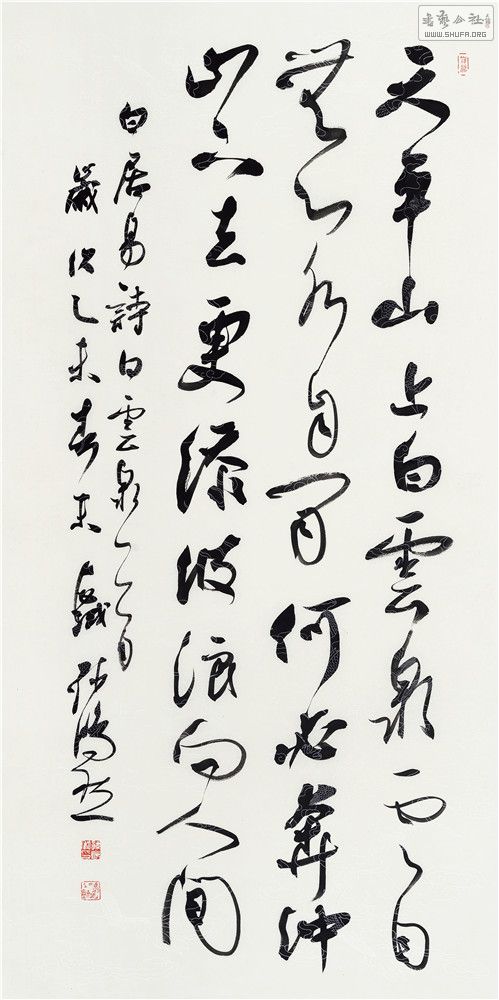 书艺公社
WWW.SHUFA.ORG
天平山上白雲泉云自
無心水自閒何必奔沖
山下去更添波浪向人間
白居易詩白雲泉一首
歲次乙未春末